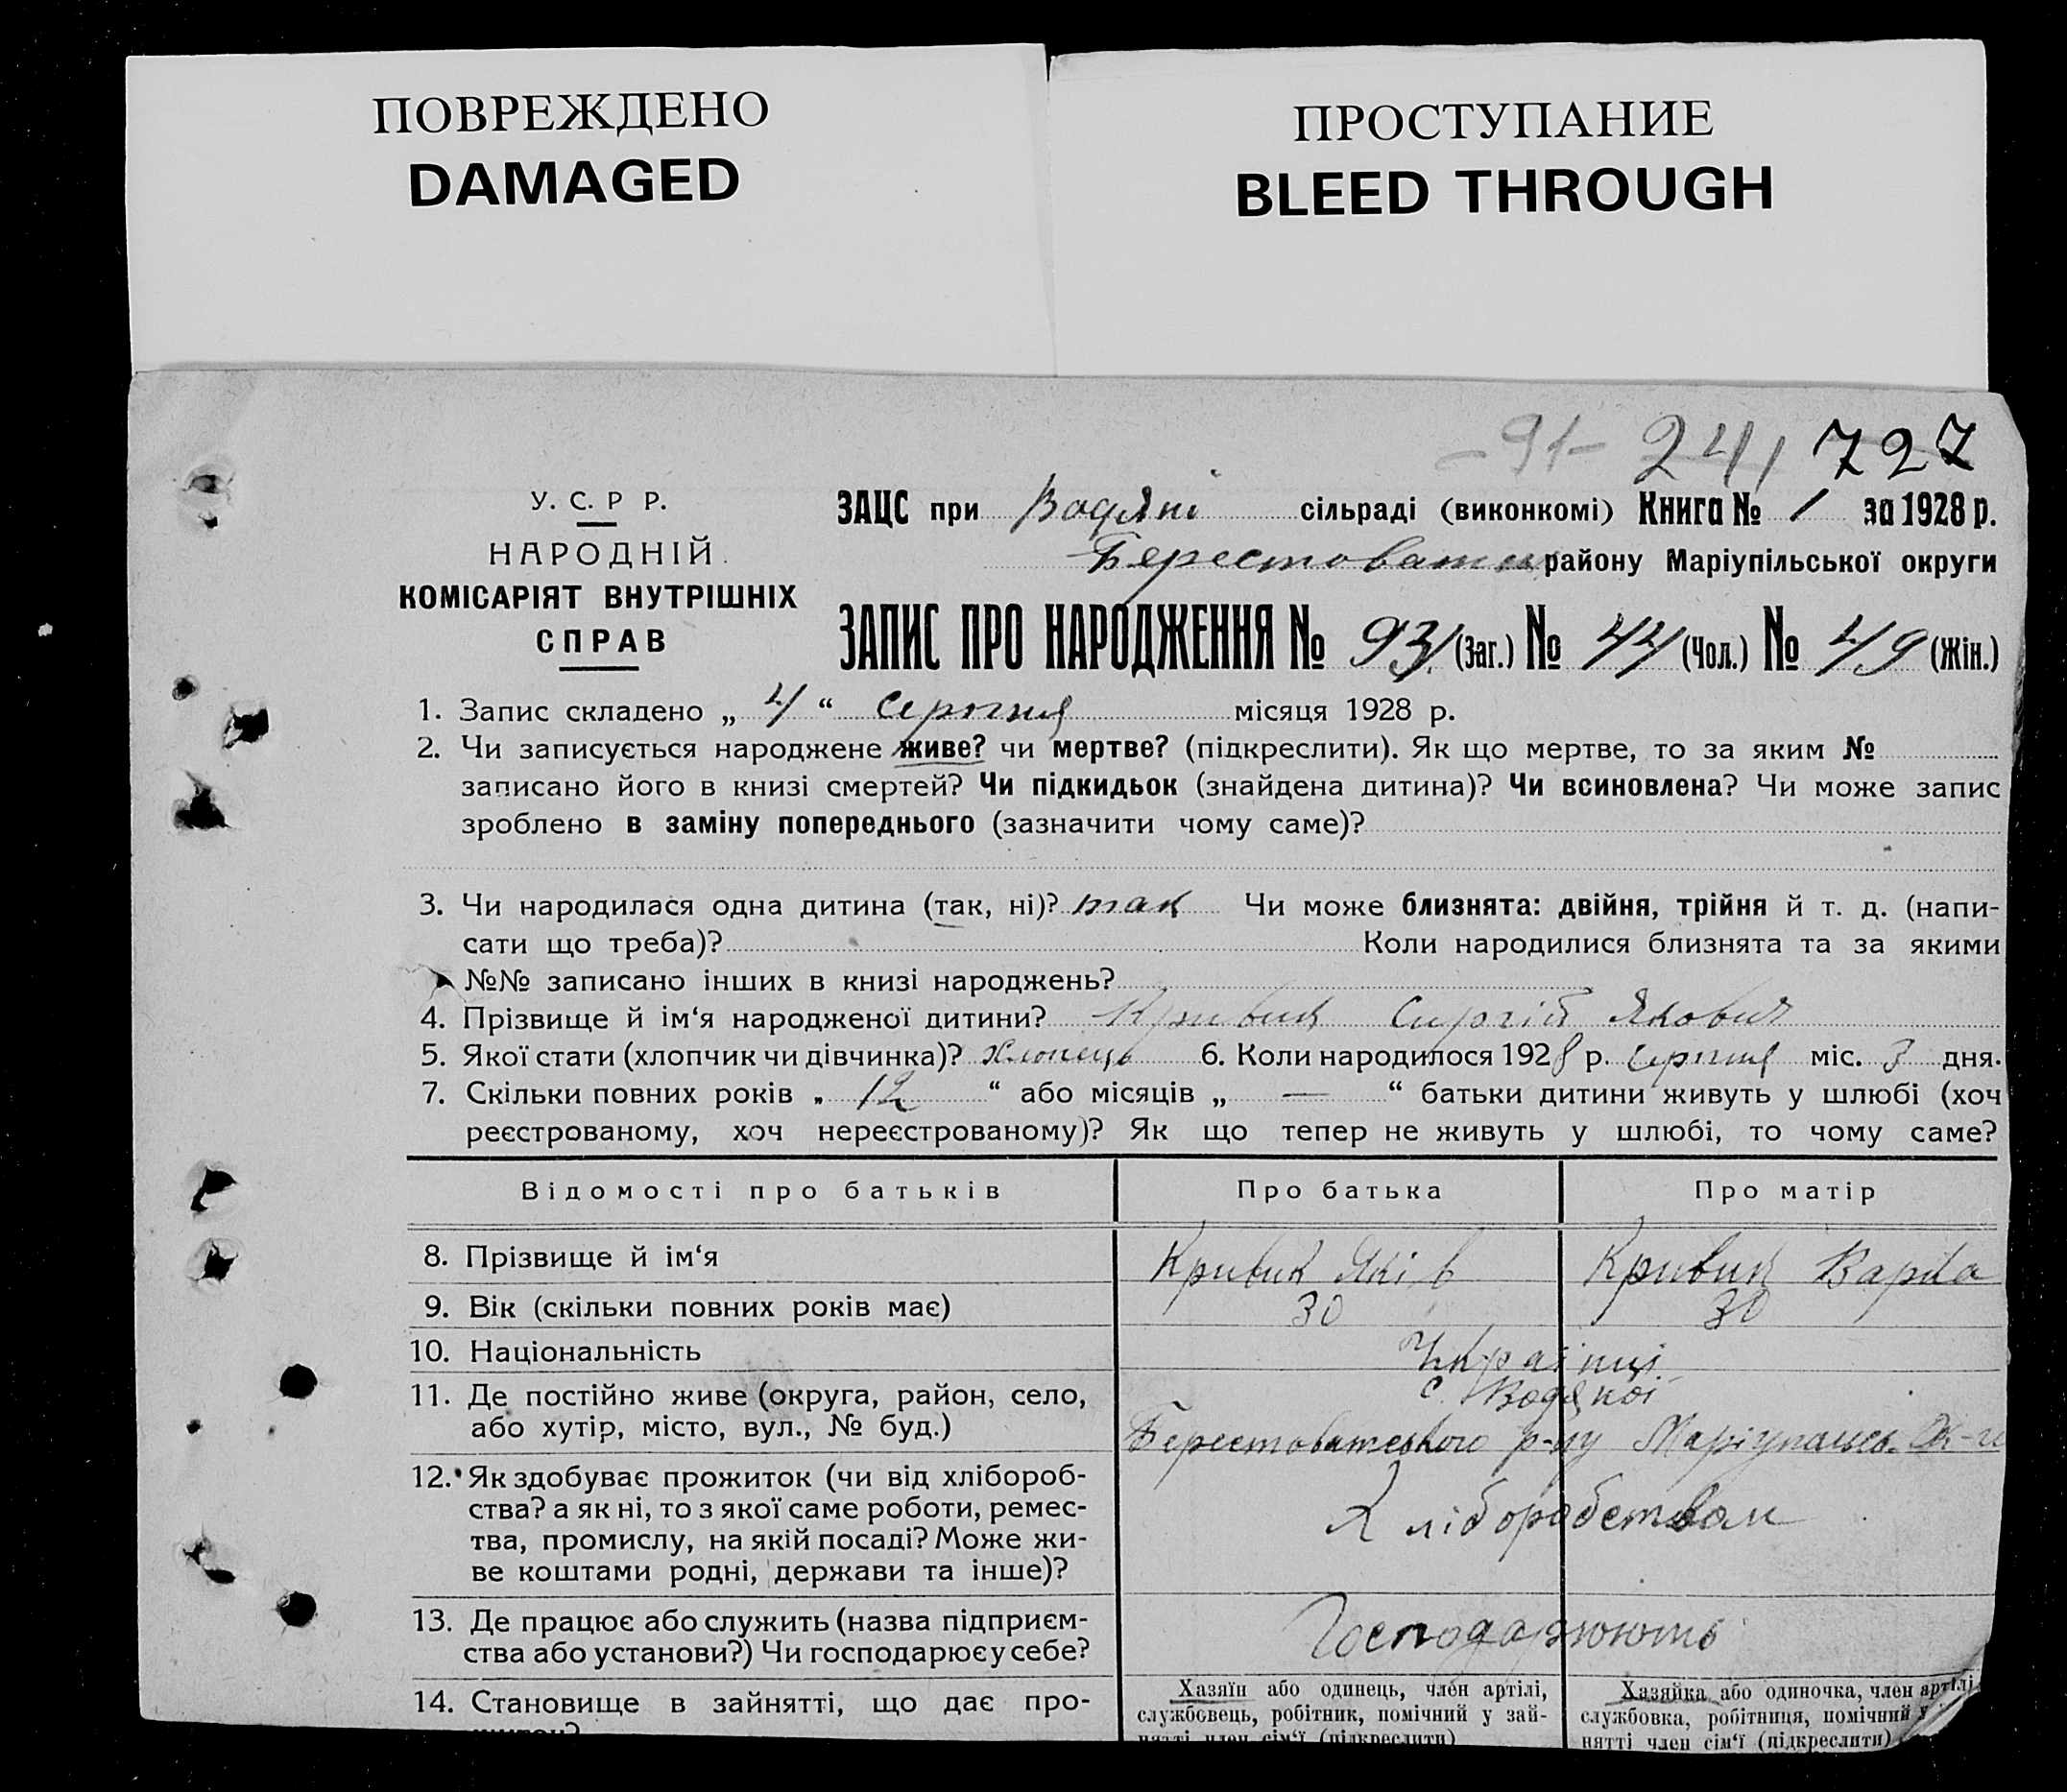 ПОВРЕЖДЕНО
DAMAGED
ПРОСТУПАНИЕ
BLEED THROUGH
-91- 241 727
У. С. Р Р.
НАРОДНІЙ
КОМІСАРІЯТ ВНУТРІШНІХ
СПРАВ
ЗАЦС при Водяні сільраді (виконкомі) Книга № 1 за 1928 р.
району Маріупільської округи
ЗАПИС ПРО НАРОДЖЕННЯ № 93 (Заг.) № 44 (Чол.) № 49 (Жін.)
1. Запис складено „ 4 “ серпня місяця 1928 р.
2. Чи записується народжене живе? чи мертве? (підкреслити). Як що мертве, то за яким №
записано його в книзі смертей? Чи підкидьок (знайдена дитина)? Чи всиновлена? Чи може запис
зроблено в заміну попереднього (зазначити чому саме)?
3. Чи народилася одна дитина (так, ні)? так Чи може близнята: двійня, трійня й т. д. (напи-
сати що треба)? Коли народилися близнята та за якими
№№ записано інших в книзі народжень?
4. Прізвище й ім‘я народженої дитини? Кривик Сиргій Якович
5. Якої стати (хлопчик чи дівчинка)? хлопець 6. Коли народилося 1928 р. серпня міс. 3 дня.
7. Скільки повних років „ 12 “ або місяців „ — “ батьки дитини живуть у шлюбі (хоч
реєстрованому, хоч нереєстрованому)? Як що тепер не живуть у шлюбі, то чому саме?
Відомості про батьків Про батька Про матір
8. Прізвище й ім‘я Кривик Яків Кривик Варка
9. Вік (скільки повних років має) 30 30
10. Національність Українці
11. Де постійно живе (округа, район, село, с. Водяної
або хутір, місто, вул., № буд.) Берестоватського р-ну Маріупальсь. Ок-и
12. Як здобуває прожиток (чи від хлібороб-
ства? а як ні, то з якої саме роботи, ремес- Хліборобством
тва, промислу, на якій посаді? Може жи-
ве коштами родні, держави та інше)?
13. Де працює або служить (назва підприєм- Господарюють
ства або установи?) Чи господарює у себе?
14. Становище в зайнятті, що дає про- Хазяїн або одинець, член артілі, Хазяйка або одиночка, член артілі
службовець, робітник, помічний у зай- службовка, робітниця, помічний у
нятті член сім‘ї (підкреслити) нятті член сім‘ї (підкреслити)